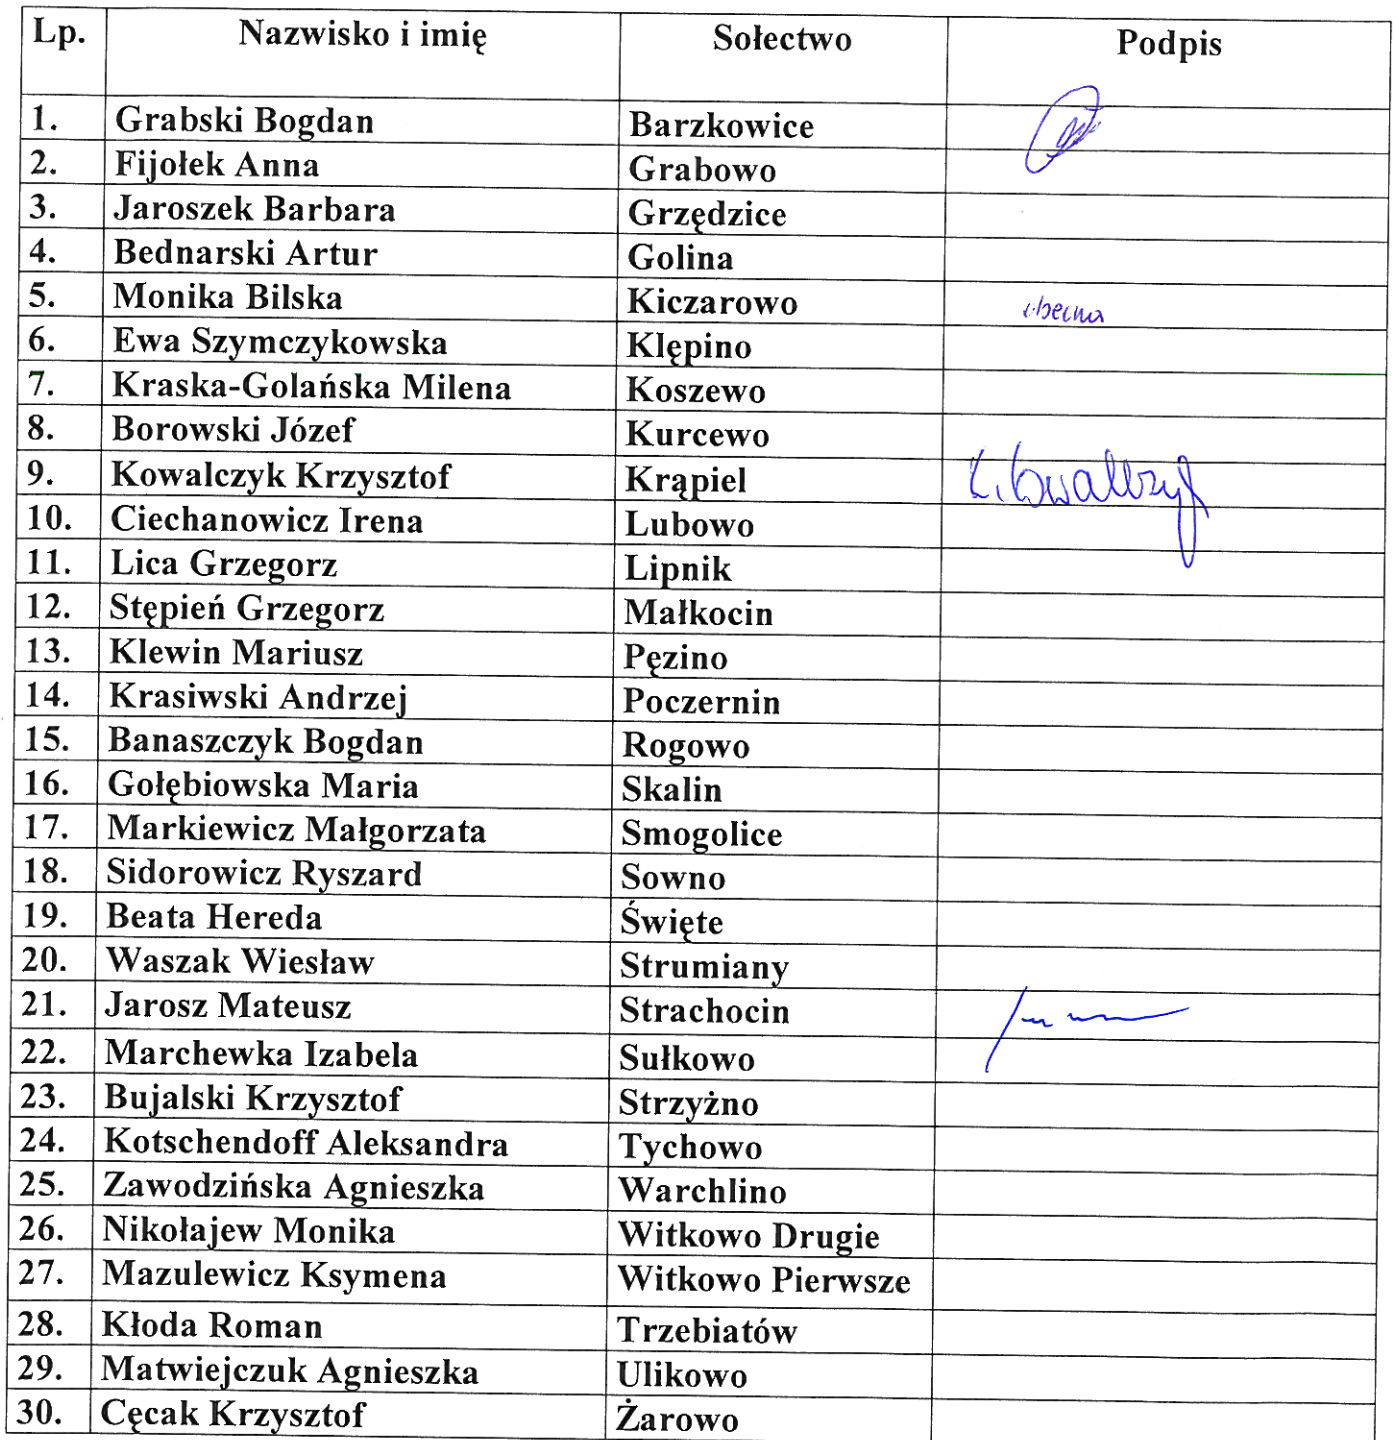 Lp. Nazwisko i imię Sołectwo Podpis
1. Grabski Bogdan Barzkowice
2. Fijołek Anna Grabowo
3. Jaroszek Barbara Grzędzice
4. Bednarski Artur Golina
5. Monika Bilska Kiczarowo obecna
6. Ewa Szymczykowska Klępino
7. Kraska-Golańska Milena Koszewo
8. Borowski Józef Kurcewo
9. Kowalczyk Krzysztof Krąpiel K. Kowalczyk
10. Ciechanowicz Irena Lubowo
11. Lica Grzegorz Lipnik
12. Stępień Grzegorz Małkocin
13. Klewin Mariusz Pęzino
14. Krasiwski Andrzej Poczernin
15. Banaszczyk Bogdan Rogowo
16. Gołębiowska Maria Skalin
17. Markiewicz Małgorzata Smogolice
18. Sidorowicz Ryszard Sowno
19. Beata Hereda Święte
20. Waszak Wiesław Strumiany
21. Jarosz Mateusz Strachocin
22. Marchewka Izabela Sułkowo
23. Bujalski Krzysztof Strzyżno
24. Kotschendoff Aleksandra Tychowo
25. Zawodzińska Agnieszka Warchlino
26. Nikołajew Monika Witkowo Drugie
27. Mazulewicz Ksymena Witkowo Pierwsze
28. Kłoda Roman Trzebiatów
29. Matwiejczuk Agnieszka Ulikowo
30. Cęcak Krzysztof Żarowo